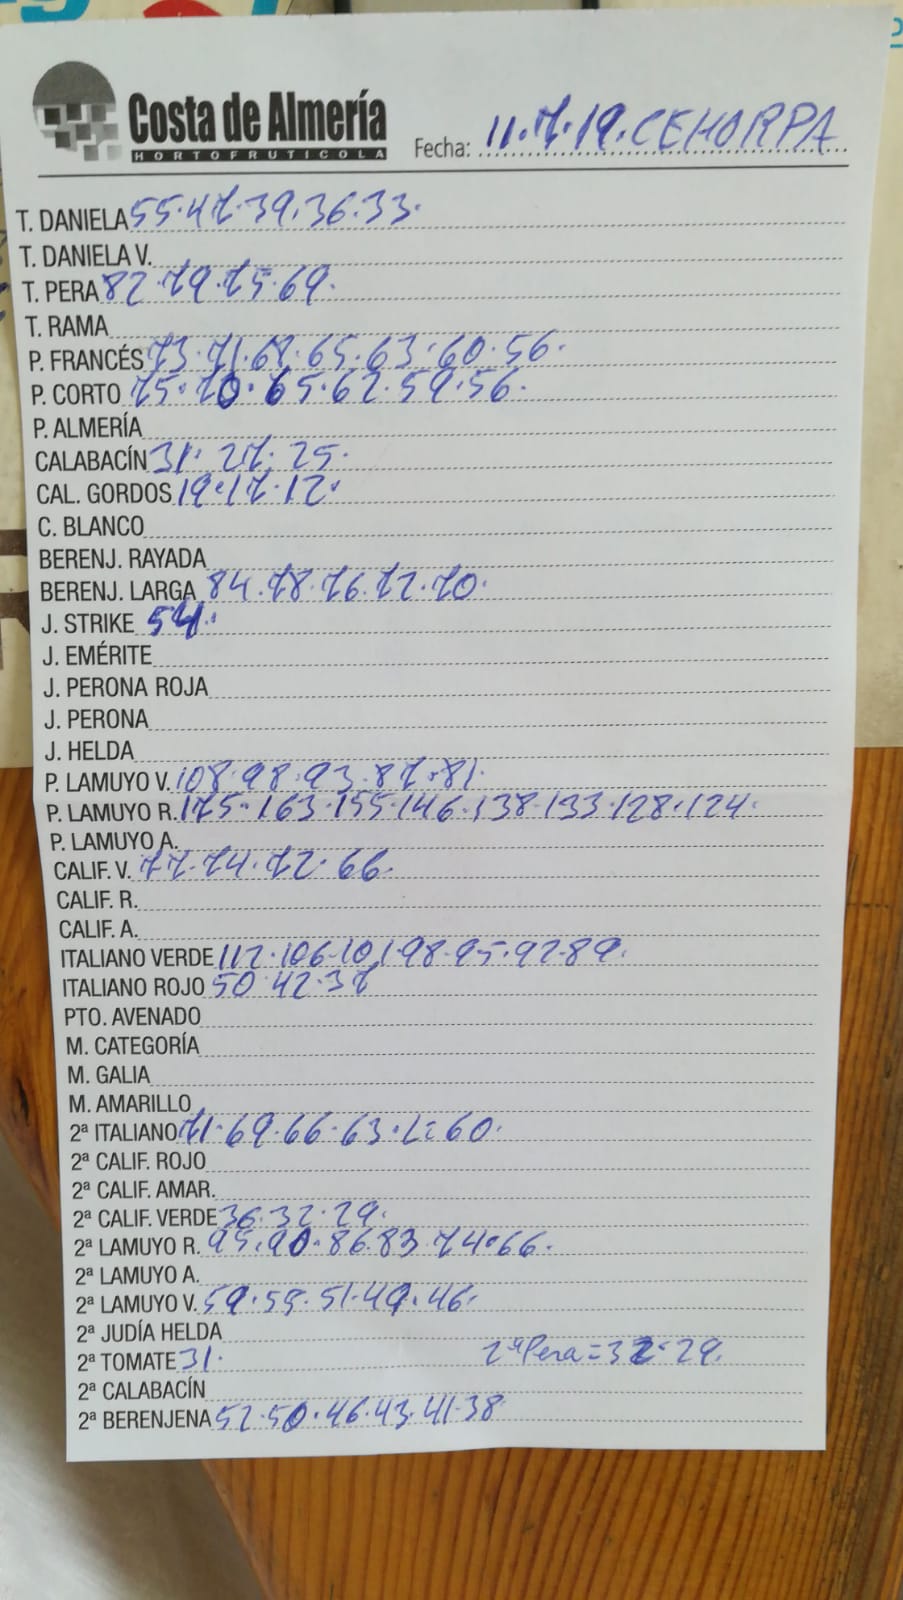 Costa de Almería
HORTOFRUTICOLA
Fecha: 11.7.19. CEHORPA
T. DANIELA 55.47.39.36.33.
T. DANIELA V.
T. PERA 82.79.75.69.
T. RAMA
P. FRANCÉS 73.71.67.65.63.60.56.
P. CORTO 75.70.65.62.59.56.
P. ALMERÍA
CALABACÍN 31.27.25.
CAL. GORDOS 19.17.12.
C. BLANCO
BERENJ. RAYADA
BERENJ. LARGA 84.78.76.72.70.
J. STRIKE 54.
J. EMÉRITE
J. PERONA ROJA
J. PERONA
J. HELDA
P. LAMUYO V. 108.98.93.87.81.
P. LAMUYO R. 175.163.155.146.138.133.128.124.
P. LAMUYO A.
CALIF. V. 77.74.72.66.
CALIF. R.
CALIF. A.
ITALIANO VERDE 112.106.101.98.95.92.89.
ITALIANO ROJO 50.42.37
PTO. AVENADO
M. CATEGORÍA
M. GALIA
M. AMARILLO
2ª ITALIANO 71.69.66.63.60.
2ª CALIF. ROJO
2ª CALIF. AMAR.
2ª CALIF. VERDE 36.32.29.
2ª LAMUYO R. 95.90.86.83.74.66.
2ª LAMUYO A.
2ª LAMUYO V. 59.55.51.49.46.
2ª JUDÍA HELDA
2ª TOMATE 31. 2ª Pera=32.29.
2ª CALABACÍN
2ª BERENJENA 52.50.46.43.41.38